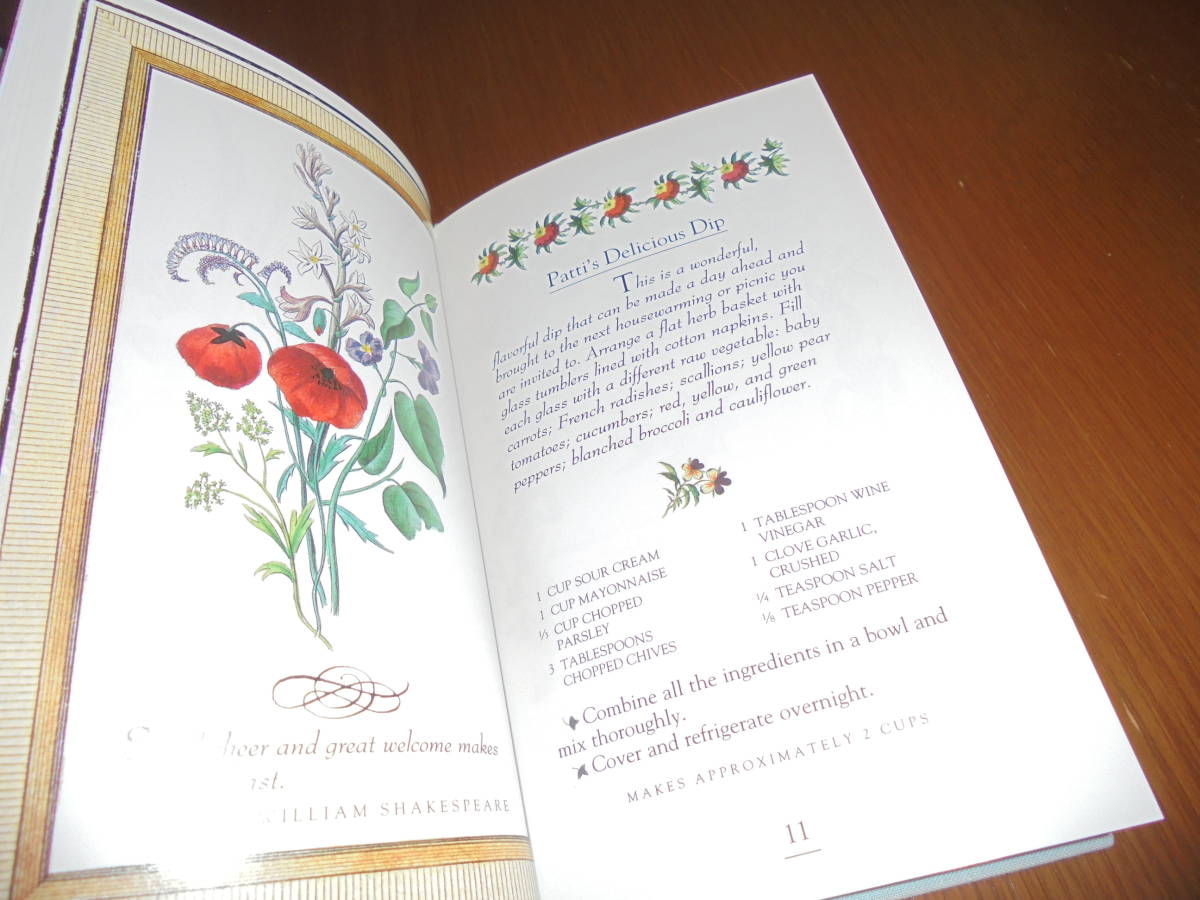 cheer and great welcome makes
WILLIAM SHAKESPEARE
Patti's Delicious Dip
This is a wonderful,
flavorful dip that can be made a day ahead and
brought to the next housewarming or picnic you
are invited to. Arrange a flat herb basket with
glass tumblers lined with cotton napkins. Fill
each glass with a different raw vegetable: baby
carrots; French radishes; scallions; yellow pear
tomatoes; cucumbers; red, yellow, and green
peppers; blanched broccoli and cauliflower.
1 CUP SOUR CREAM
1 CUP MAYONNAISE
⅓ CUP CHOPPED
PARSLEY
3 TABLESPOONS
CHOPPED CHIVES
1 TABLESPOON WINE
VINEGAR
1 CLOVE GARLIC,
CRUSHED
¼ TEASPOON SALT
⅛ TEASPOON PEPPER
Combine all the ingredients in a bowl and
mix thoroughly.
Cover and refrigerate overnight.
MAKES APPROXIMATELY 2 CUPS
11